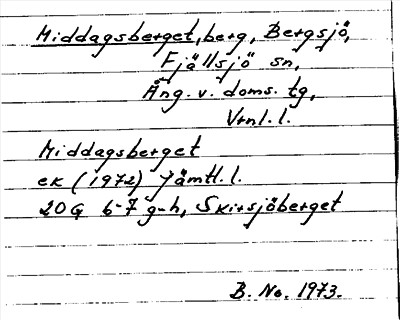 Middagsberget, berg, Bergsjö,
Fjällsjö sn,
Ång. v. doms. tg,
Vrnl. l.
Middagsberget
ek (1972) Jämtl. l.
20G 6-7 g-h, Skirsjöberget
B. No. 1973.